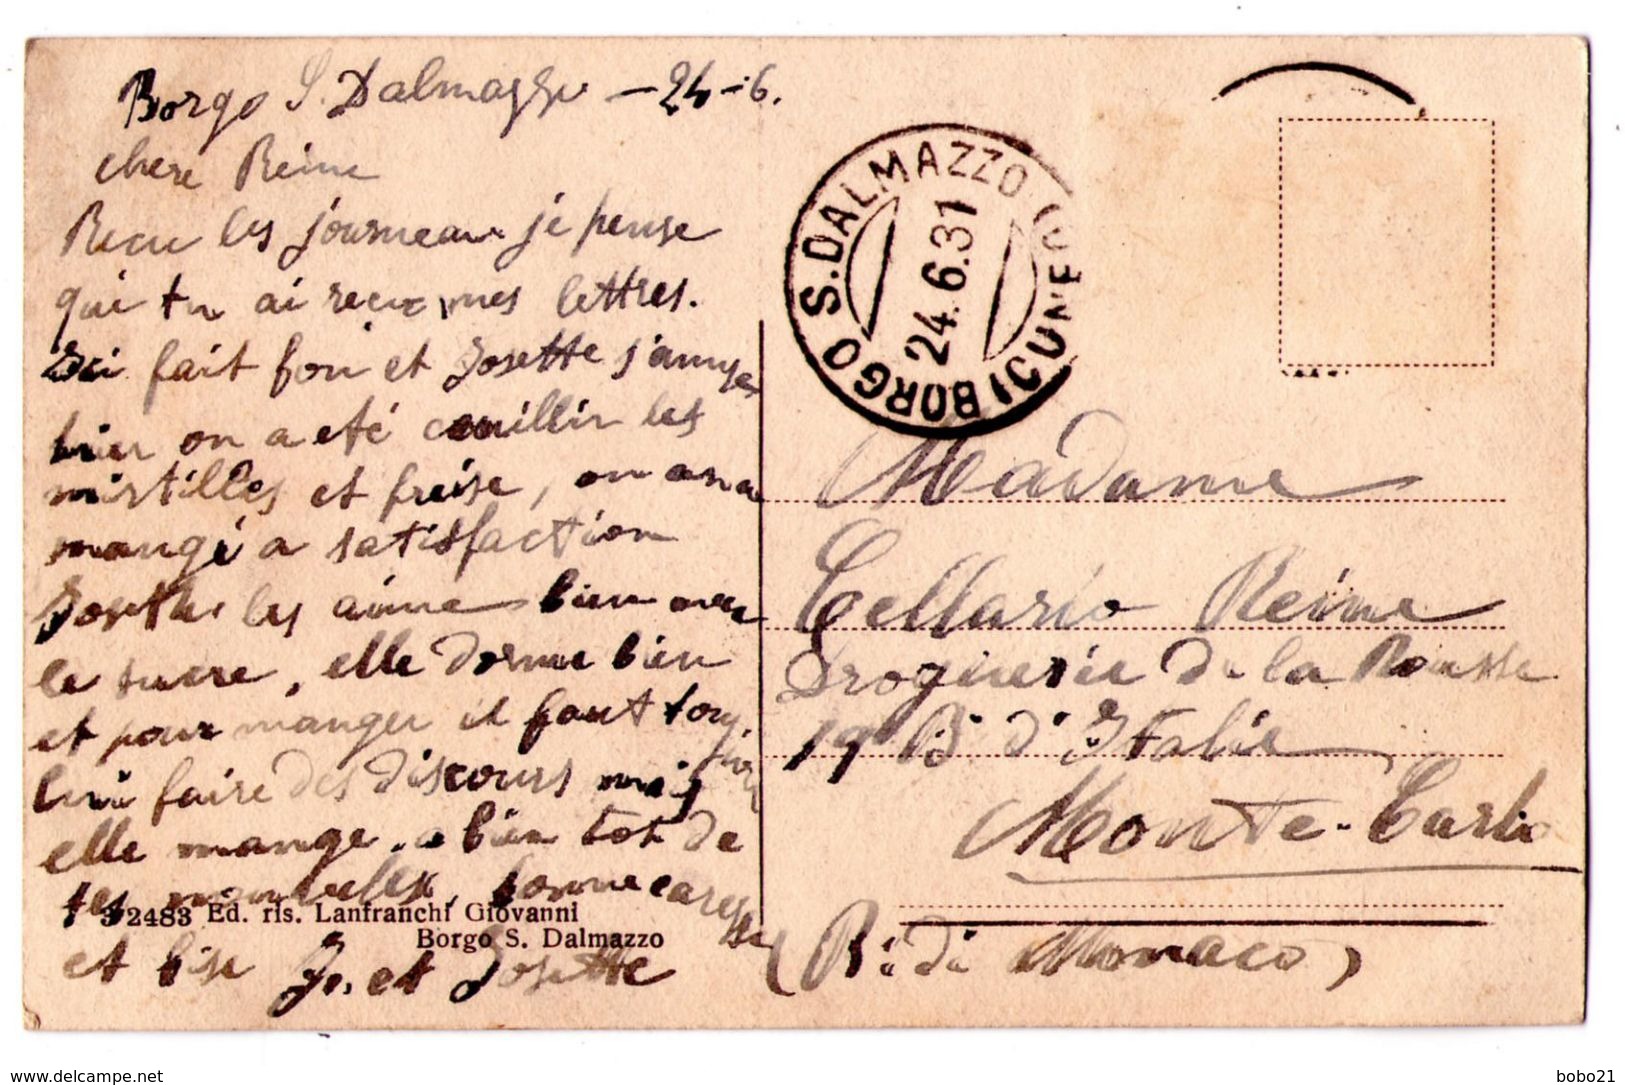 Borgo S. Dalmazzo - 24-6.
chere Reine
Recu les journeau je pense
qui tu ai recu mes lettres.
Ici fait bon et Josette s'amuse
hier on a eté cueillir les
mirtilles et freise, on en a
mangé a satisfaction
Josette les aime bien avec
le sucre, elle dorme bien
et pour manger il faut touj
jours
lui faire des discours mais
elle mange. a bien tot de
tes nouvelles, bonne caresse
et bise Jo. et Josette
32483 Ed. ris. Lanfranchi Giovanni
Borgo S. Dalmazzo
BORGO S. DALMAZZO (CUNEO)
24.6.31
Madame
Cellario Reine
Droguerie de la Rousse
19 Bd d'Italie
Monte-Carlo
(P. di Monaco)
www.delcampe.net
bobo21